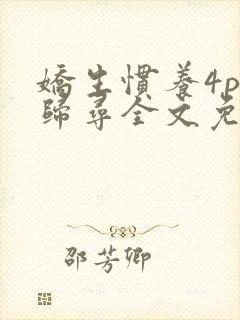 嬌生慣養4p
歸尋全文免
邵芳卿